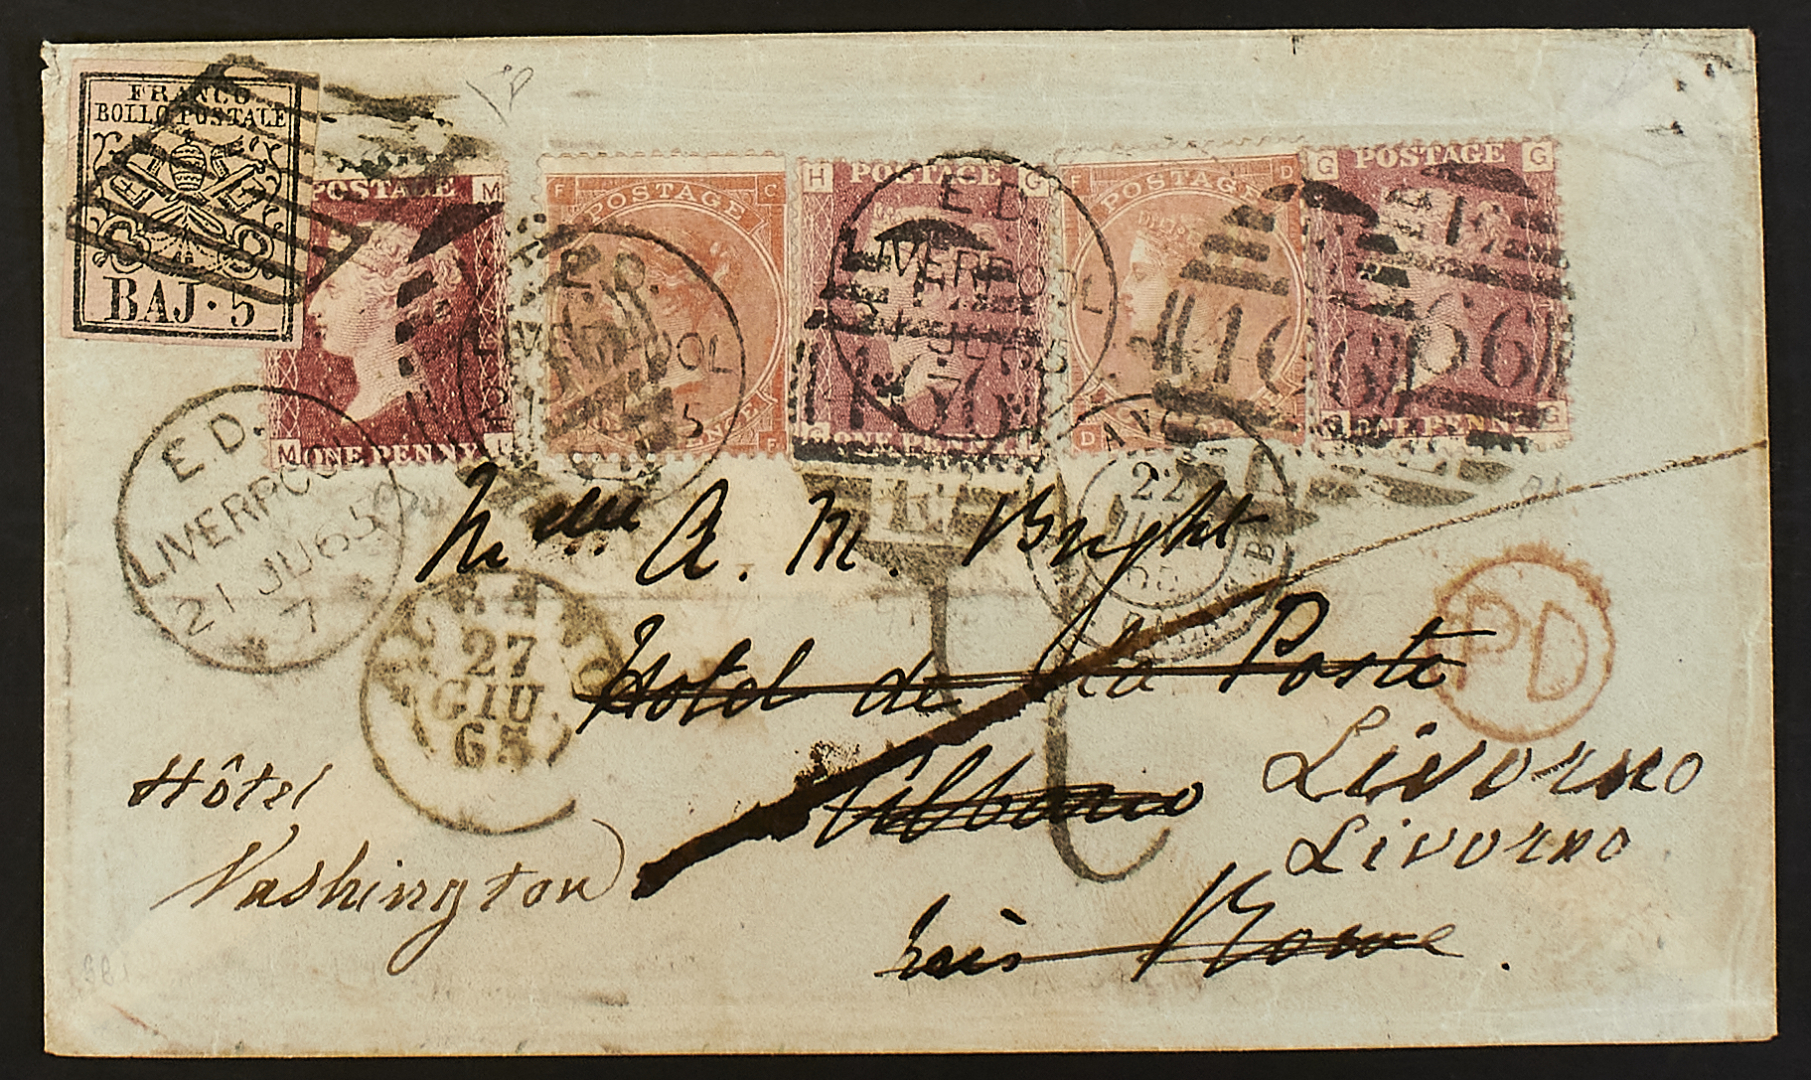 FRANCO
BOLLO POSTALE
BAJ · 5
POSTAGE M
M ONE PENNY
F POSTAGE C
F
H POSTAGE G
G ONE PENNY H
F POSTAGE D
D
G POSTAGE G
G ONE PENNY G
E.D.
LIVERPOOL
21 JU 65
7
E.D.
LIVERPOOL
E.D.
LIVERPOOL
21 JU 65
7
466
466
466
22
65
27
GIU
65
PD
Melle A. M. Bright
Hotel de la Poste
Albano
près Rome.
Livorno
Livorno
Hôtel
Washington